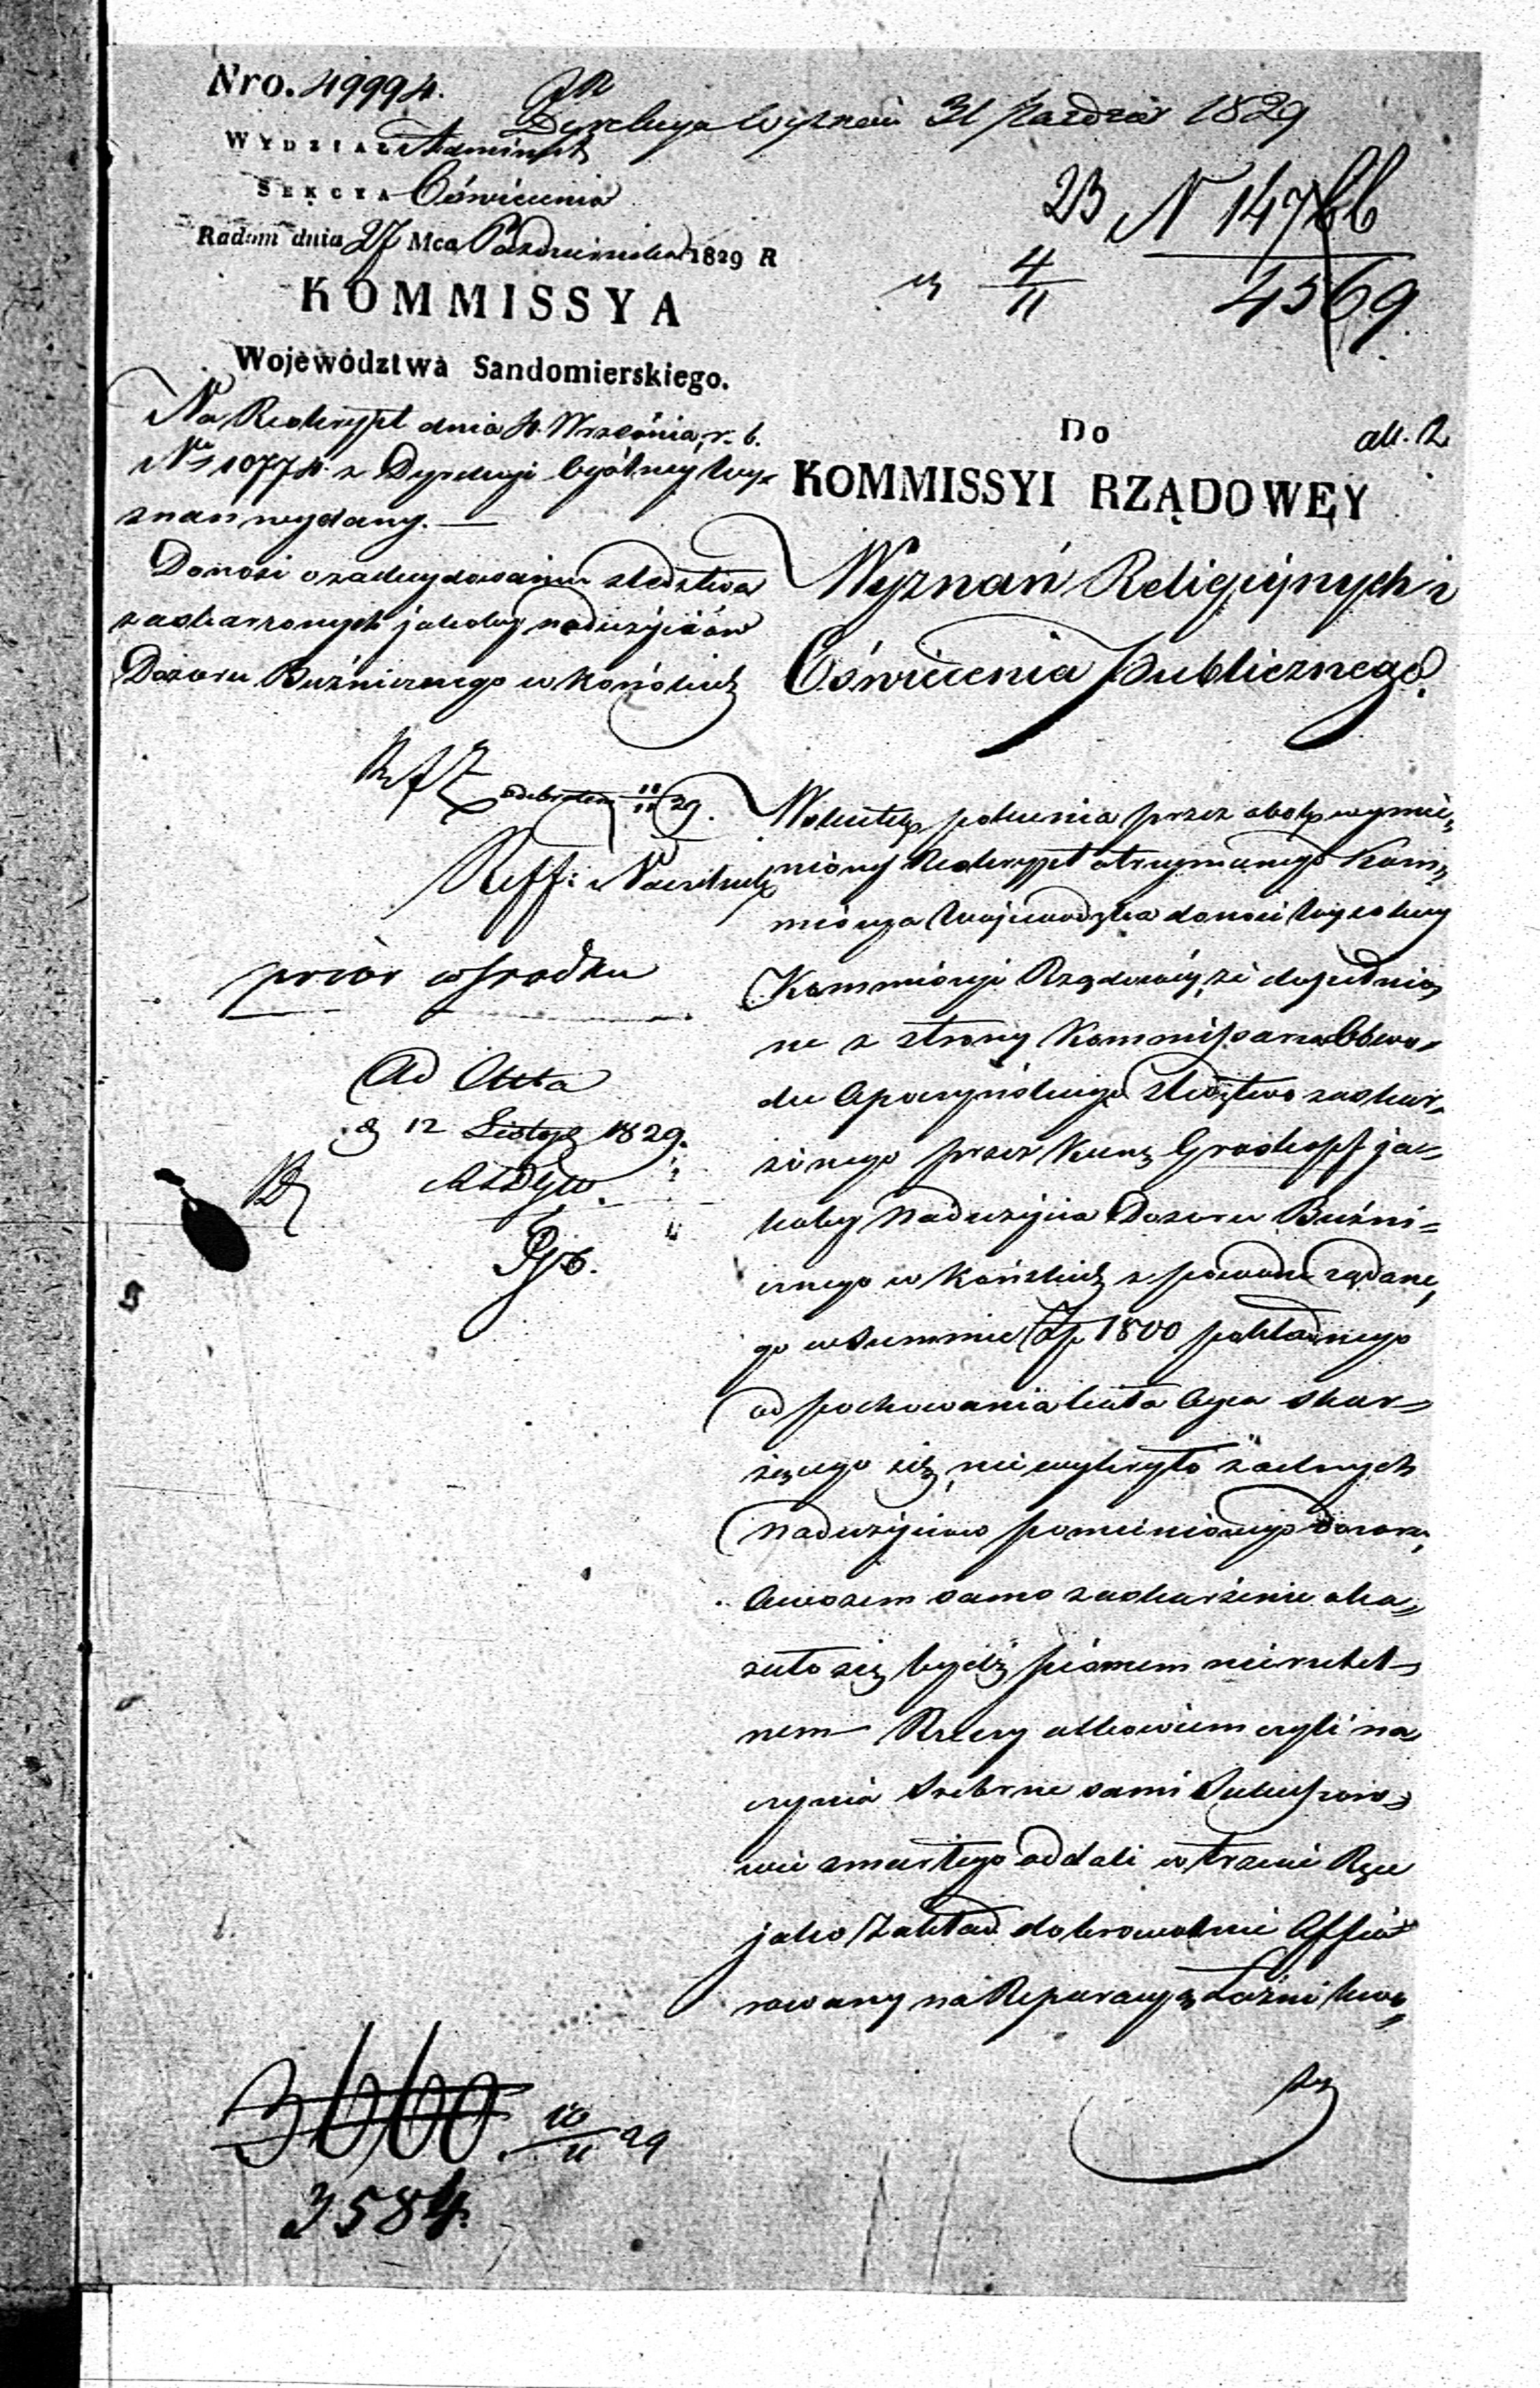 Nro. 49994.
Dyrekcya Wyznań 31 Paździer 1829
WYDZIAŁ Administ
SEKCYA Oświecenia
Radom dnia 27 Mca Października 1829 R
23 N 14766
4/11 4569
KOMMISSYA
Województwa Sandomierskiego.
Na Reskrypt dnia 4. Września, r. b.
Nro 10774. z Dyrekcyi Ogólney Wy-
znań wydany. —
Donosi o zadecydowaniu śledztwa
zaskarzonych jakoby nadużyciów
Dozoru Bużnicznego w Końskich
Do
all. 2
KOMMISSYI RZĄDOWEY
Wyznań Religijnych i
Oświecenia Publicznego.
odebrałem 11/11 29.
Reff: Naczelnik
prior w środku
Ad Acta
d 12 Listop 1829.
Wskutek polecenia przez obok wymie-
niony Reskrypt otrzymanego Kom-
missya Wojewódzka donosi Wysokiey
Kommissyi Rządowey, że dopełnio-
ne z strony Kommissarza Obwo-
du Opoczyńskiego śledztwo zaskar-
żonego przez Kunę Groskopf ja-
koby Nadużycia Dozoru Bużni-
cznego w Końskich z powodu żądane-
go w Summie Złp 1800 pokładnego
od pochowania ciała Oyca skar-
żącego się, nie wykryło żadnych
nadużyciów pomienionego dozoru,
Owszem samo zaskarżenie oka-
zało się bydź pismem nierzetel-
nem — Rzeczy albowiem czyli na-
czynia srebrne sami Sukcessoro-
wie zmarłego oddali w trzecie Ręce
jako Zakład dobrowolnie Offia-
rowany na Reparacyą Łaźni kwo-
ty
3660. 10/11 29
3584.